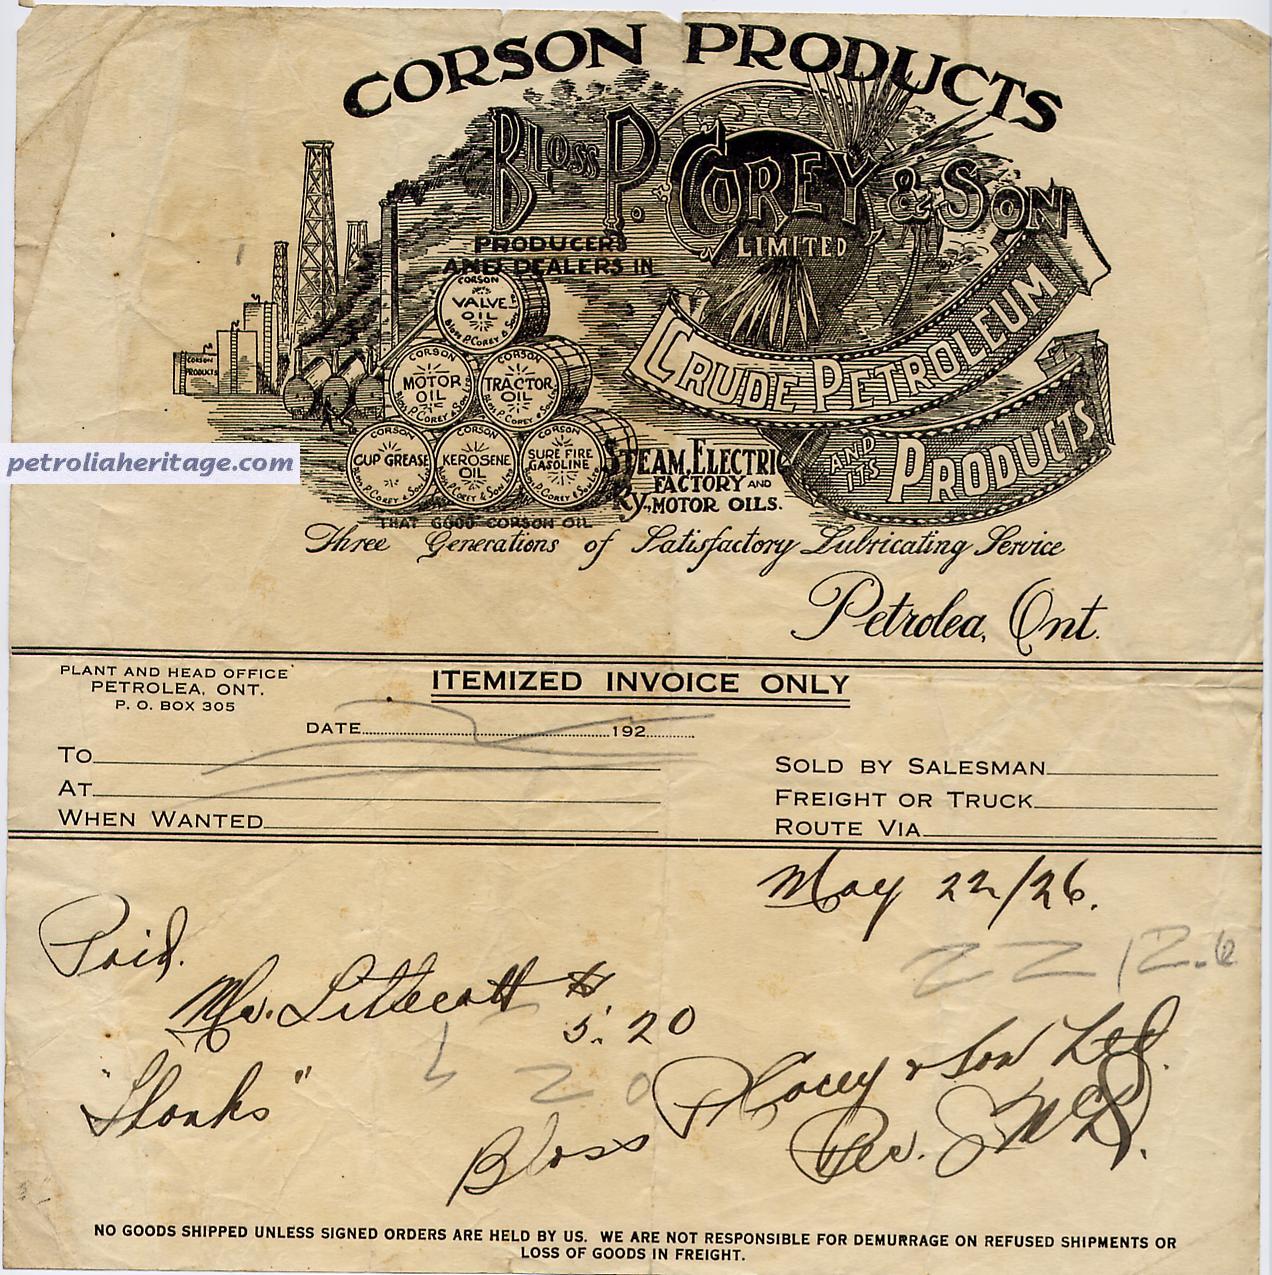 CORSON PRODUCTS
BLOSS P. COREY & SON
LIMITED
PRODUCERS
AND DEALERS IN
CRUDE PETROLEUM
AND ITS PRODUCTS
CORSON
VALVE
OIL
BLOSS P. COREY & SON LTD
CORSON
MOTOR
OIL
BLOSS P. COREY & SON LTD
CORSON
TRACTOR
OIL
BLOSS P. COREY & SON LTD
CORSON
PRODUCTS
CORSON
CUP GREASE
BLOSS P. COREY & SON LTD
CORSON
KEROSENE
OIL
BLOSS P. COREY & SON LTD
CORSON
SURE FIRE
GASOLINE
BLOSS P. COREY & SON LTD
STEAM, ELECTRIC
FACTORY AND
Ry., MOTOR OILS.
petroliaheritage.com
THAT GOOD CORSON OIL
Three Generations of Satisfactory Lubricating Service
Petrolea, Ont.
PLANT AND HEAD OFFICE
PETROLEA, ONT.
P. O. BOX 305
ITEMIZED INVOICE ONLY
DATE 192
TO
AT
WHEN WANTED
SOLD BY SALESMAN
FREIGHT OR TRUCK
ROUTE VIA
May 22/26.
Paid.
22/26
Mr. Littlecott $
5.20
"Thanks"
5 20
Bloss P Corey & Son Ltd.
Per.
NO GOODS SHIPPED UNLESS SIGNED ORDERS ARE HELD BY US. WE ARE NOT RESPONSIBLE FOR DEMURRAGE ON REFUSED SHIPMENTS OR
LOSS OF GOODS IN FREIGHT.